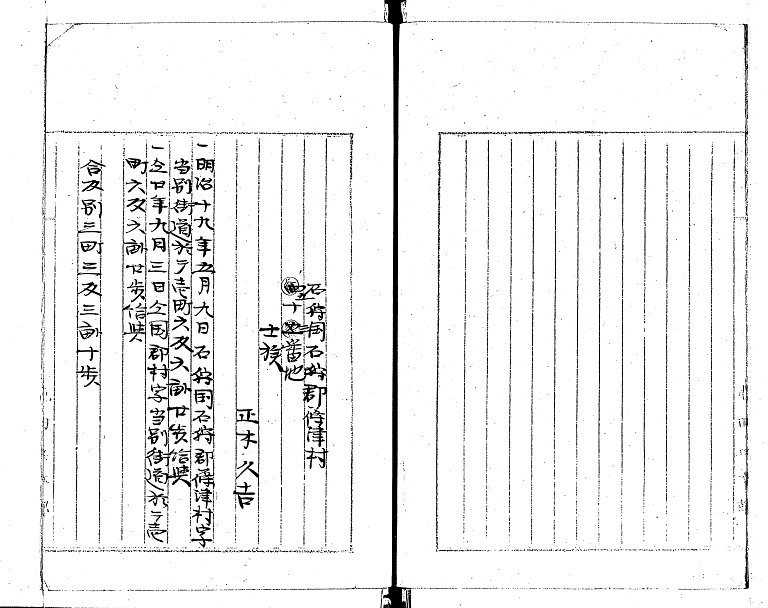 石狩国石狩郡篠津村
十番地
士族
正木久吉
一明治十九年五月九日石狩国石狩郡篠津村字
当別街道於テ壱町六反六畝廿歩給与
一仝廿年九月三日仝国郡村字当別街道於テ壱
町六反六畝廿歩給与
合反別三町三反三畝十歩